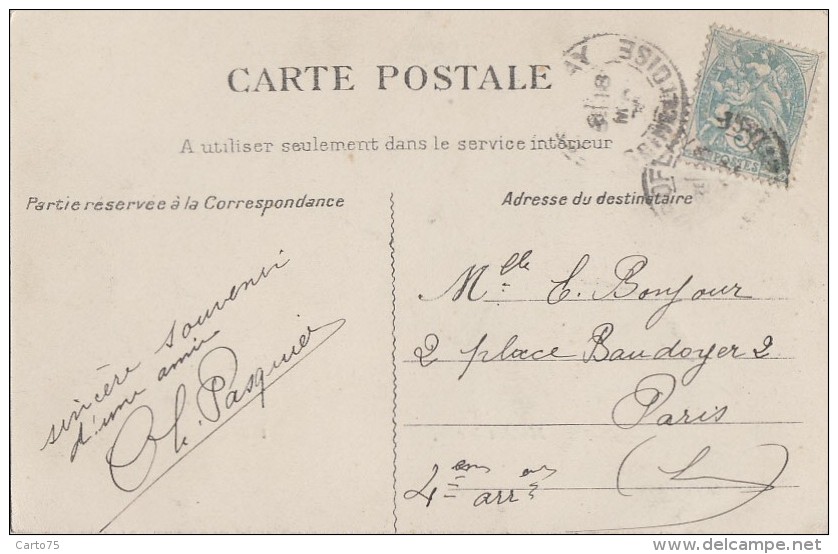 CARTE POSTALE
A utiliser seulement dans le service intérieur
Partie réservée à la Correspondance
Adresse du destinataire
sincère souvenir
d'une amie
Ch. Pasquier
Mlle E. Bonjour
2 place Baudoyer 2
Paris
4em arr
OISE
Carto75
www.delcampe.net